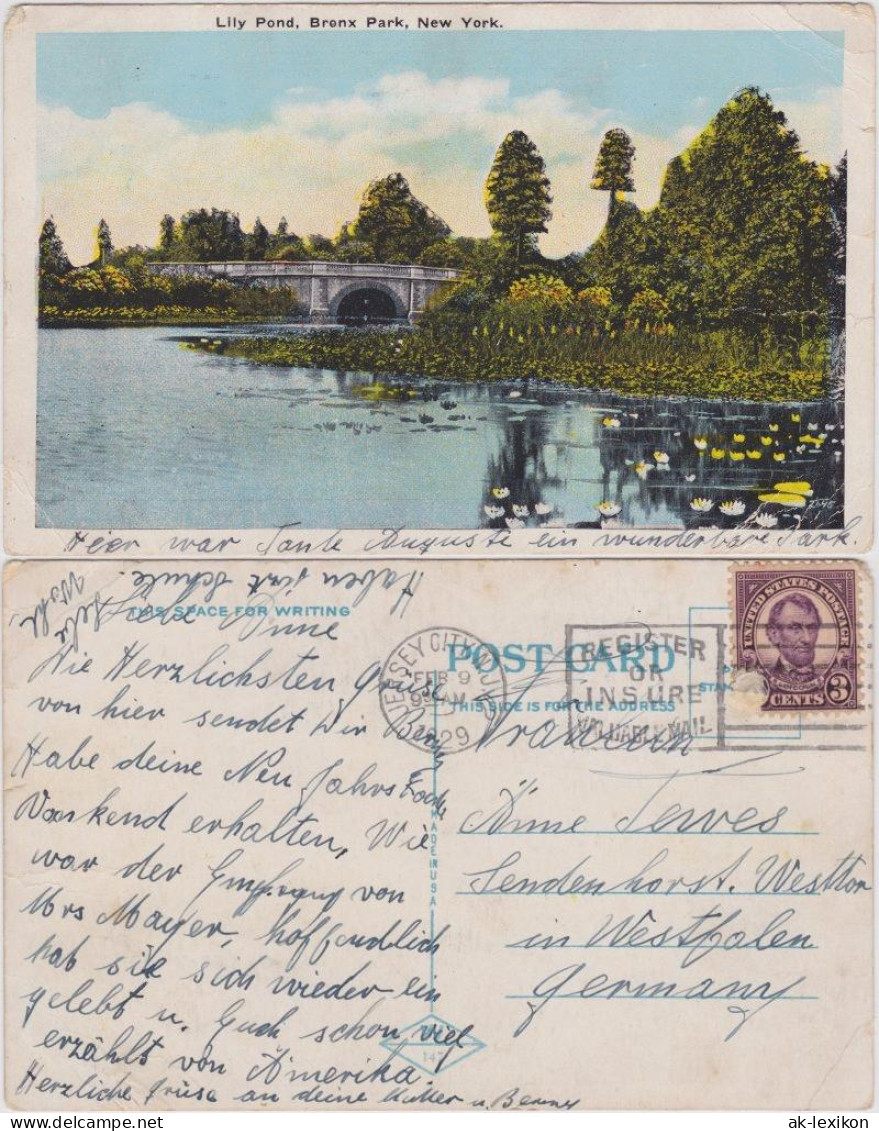 Lily Pond, Bronx Park, New York.
Hier war Tante Auguste ein wunderbare Park.
Haben jetzt Schule.
Lebe Wohl
THIS SPACE FOR WRITING
Liebe Änne
Die Herzlichsten Grüße
von hier sendet Dir
Habe deine Neu Jahrs
dankend erhalten, Wie
war der Empfang von
Mrs Mayer, hoffendlich
hat sie sich wieder ein
gelebt u. Euch schon viel
erzählt von Amerika.
Herzliche Grüse an deine Mutter u.
JERSEY CITY, N.J.
FEB 9
9 AM
1929
REGISTER
OR
INSURE
VALUABLE MAIL
UNITED STATES POSTAGE
3 CENTS 3
POST CARD
THIS SIDE IS FOR THE ADDRESS
STAMP
MADE IN USA
Fräulein
Änne Tewes
Sendenhorst. Westtor
in Westfalen
Germany
ak-lexikon